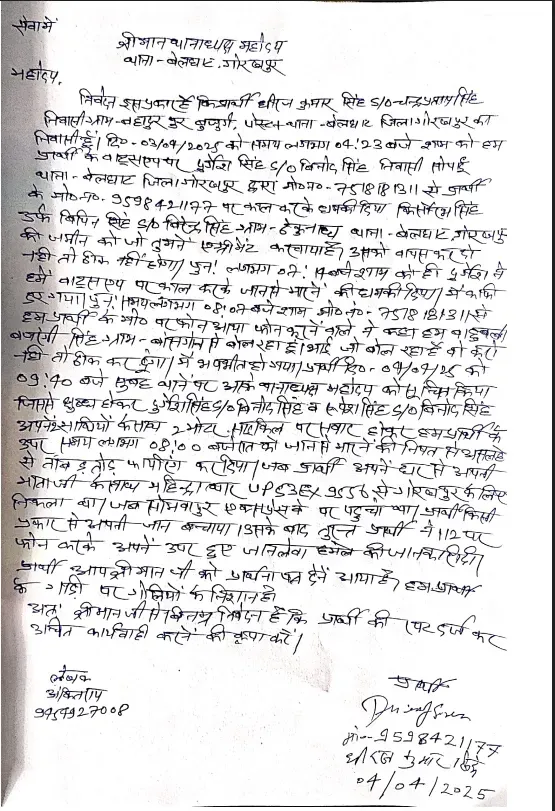 सेवा में
श्रीमान थानाध्यक्ष महोदय
थाना - बेलघाट, गोरखपुर
महोदय,
निवेदन इस प्रकार है कि प्रार्थी धीरज कुमार सिंह S/O चन्द्रप्रताप सिंह
निवासी ग्राम - बहादुरपुर बुजुर्ग, पोस्ट थाना - बेलघाट जिला गोरखपुर का
निवासी हूँ। दि० - 03/04/2025 को समय लगभग 04:23 बजे शाम को हम
प्रार्थी के वाट्सएप पर दुर्गेश सिंह S/O विनोद सिंह निवासी
थाना - बेलघाट जिला गोरखपुर द्वारा मो०न० - 7518181311 से प्रार्थी
के मो०न० - 9598421177 पर काल करके धमकी दिया कि सिंह
उर्फ विपिन सिंह S/O विरेन्द्र सिंह ग्राम - थाना - बेलघाट, गोरखपुर
की जमीन को जो तुमने एग्रीमेंट करवाया है, उसको वापस कर दो
नहीं तो ठीक नहीं होगा। पुनः लगभग 07: बजे शाम को ही दुर्गेश ने
हमें वाट्सएप पर काल करके जान से मारने की धमकी दिया। मैं काफी
डर गया। पुनः समय लगभग 08:07 बजे शाम मो०न० - 7518181311 से
हम प्रार्थी के मो० पर फोन आया फोन करने वाले ने कहा हम
सिंह ग्राम - से बोल रहा हूँ। भाई जो बोल रहा है वो करो
नहीं तो ठीक कर दूंगा। मैं भयभीत हो गया। प्रार्थी दि० - 04/04/25 को
09:40 बजे सुबह थाने पर आके थानाध्यक्ष महोदय को सूचित किया
जिससे क्षुब्ध होकर दुर्गेश सिंह S/O विनोद सिंह व सिंह S/O विनोद सिंह
अपने साथियों के साथ 2 मोटर साइकिल पर सवार होकर हम प्रार्थी के
उपर समय लगभग 08:00 बजे रात को जान से मारने की नियत से असलहे
से ताबड़तोड़ फायरिंग कर दिया। जब प्रार्थी अपने घर से अपनी
माता जी के साथ महिन्द्रा थार UP53EX9556 से गोरखपुर के लिए
निकला था। जब एक्सप्रेसवे पर पहुचा था। प्रार्थी किसी
प्रकार से अपनी जान बचाया। उसके बाद तुरन्त प्रार्थी ने 112 पर
फोन करके अपने उपर हुए जानलेवा हमले की जानकारी दी।
प्रार्थी आप श्रीमान जी को प्रार्थना पत्र देने आया है, हम प्रार्थी
के गाड़ी पर गोलियों के निशान है।
अतः श्रीमान जी से विनम्र निवेदन है कि प्रार्थी की रपट दर्ज कर
उचित कार्यवाही करने की कृपा करें।
लेखक
9454927008
प्रार्थी
मो० - 9598421177
धीरज कुमार सिंह
04/04/2025